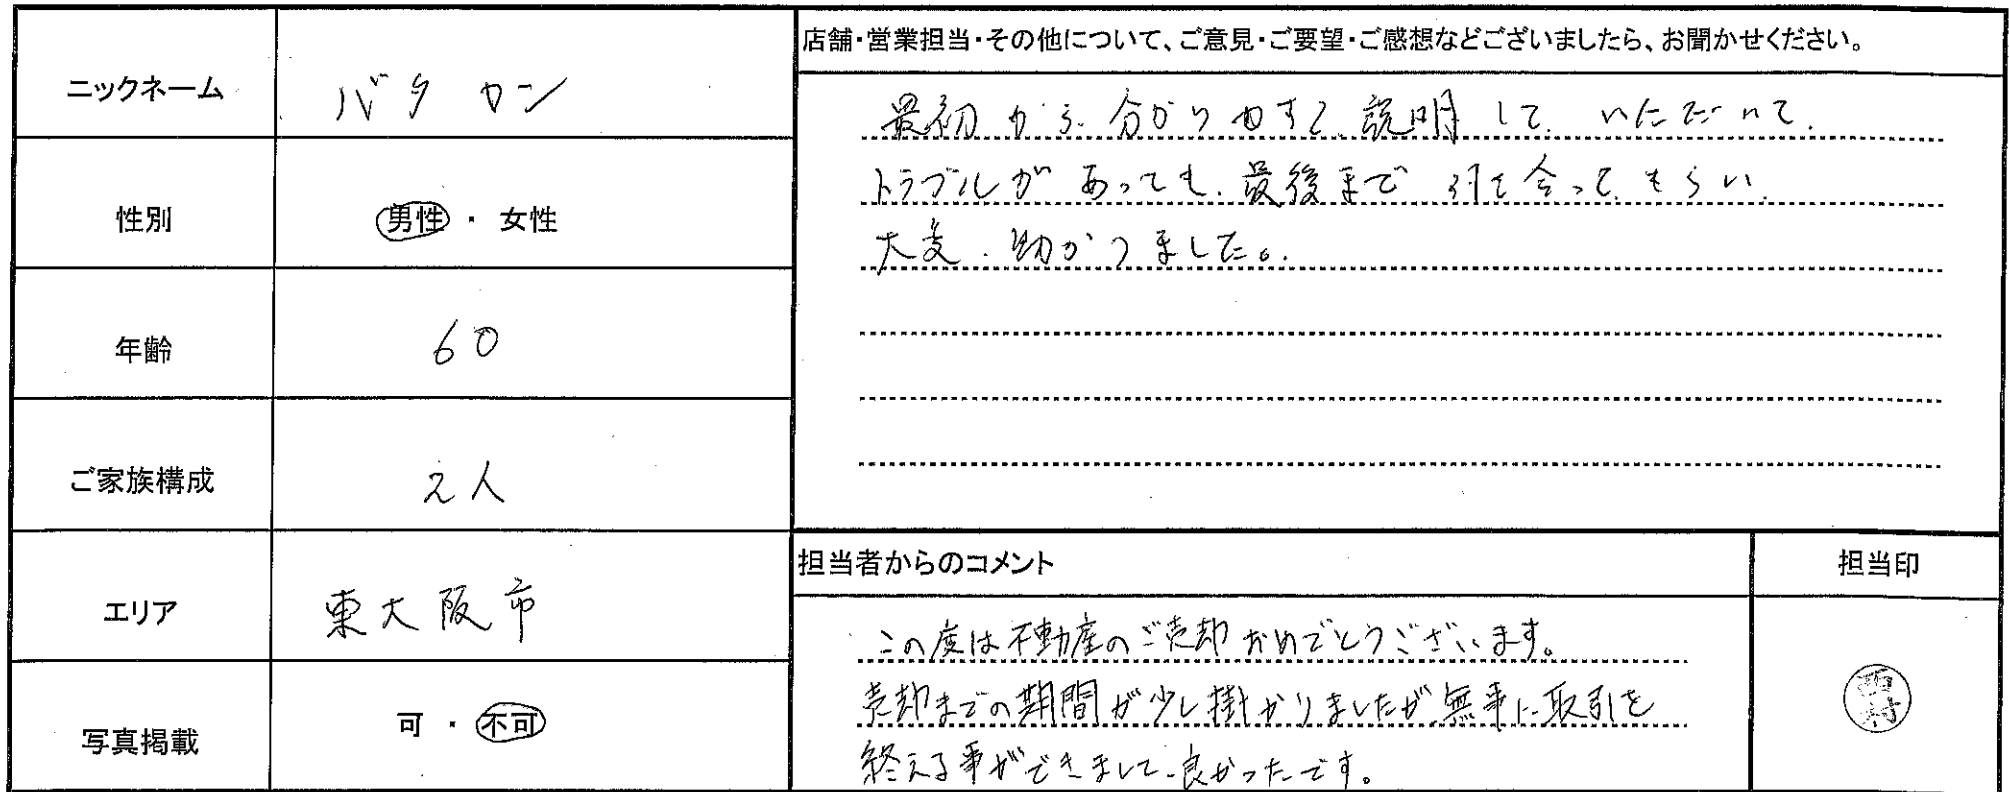 ニックネーム
バタ カン
性別
男性 ・ 女性
年齢
60
ご家族構成
2人
エリア
東大阪市
写真掲載
可 ・ 不可
店舗・営業担当・その他について、ご意見・ご要望・ご感想などございましたら、お聞かせください。
最初から、分かりやすく、説明して、いただいて、
トラブルがあっても、最後まで 付き合って、もらい、
大変、助かりました。
担当者からのコメント
この度は不動産のご売却おめでとうございます。
売却までの期間が少し掛かりましたが、無事に取引を
終える事ができまして、良かったです。
担当印
西村